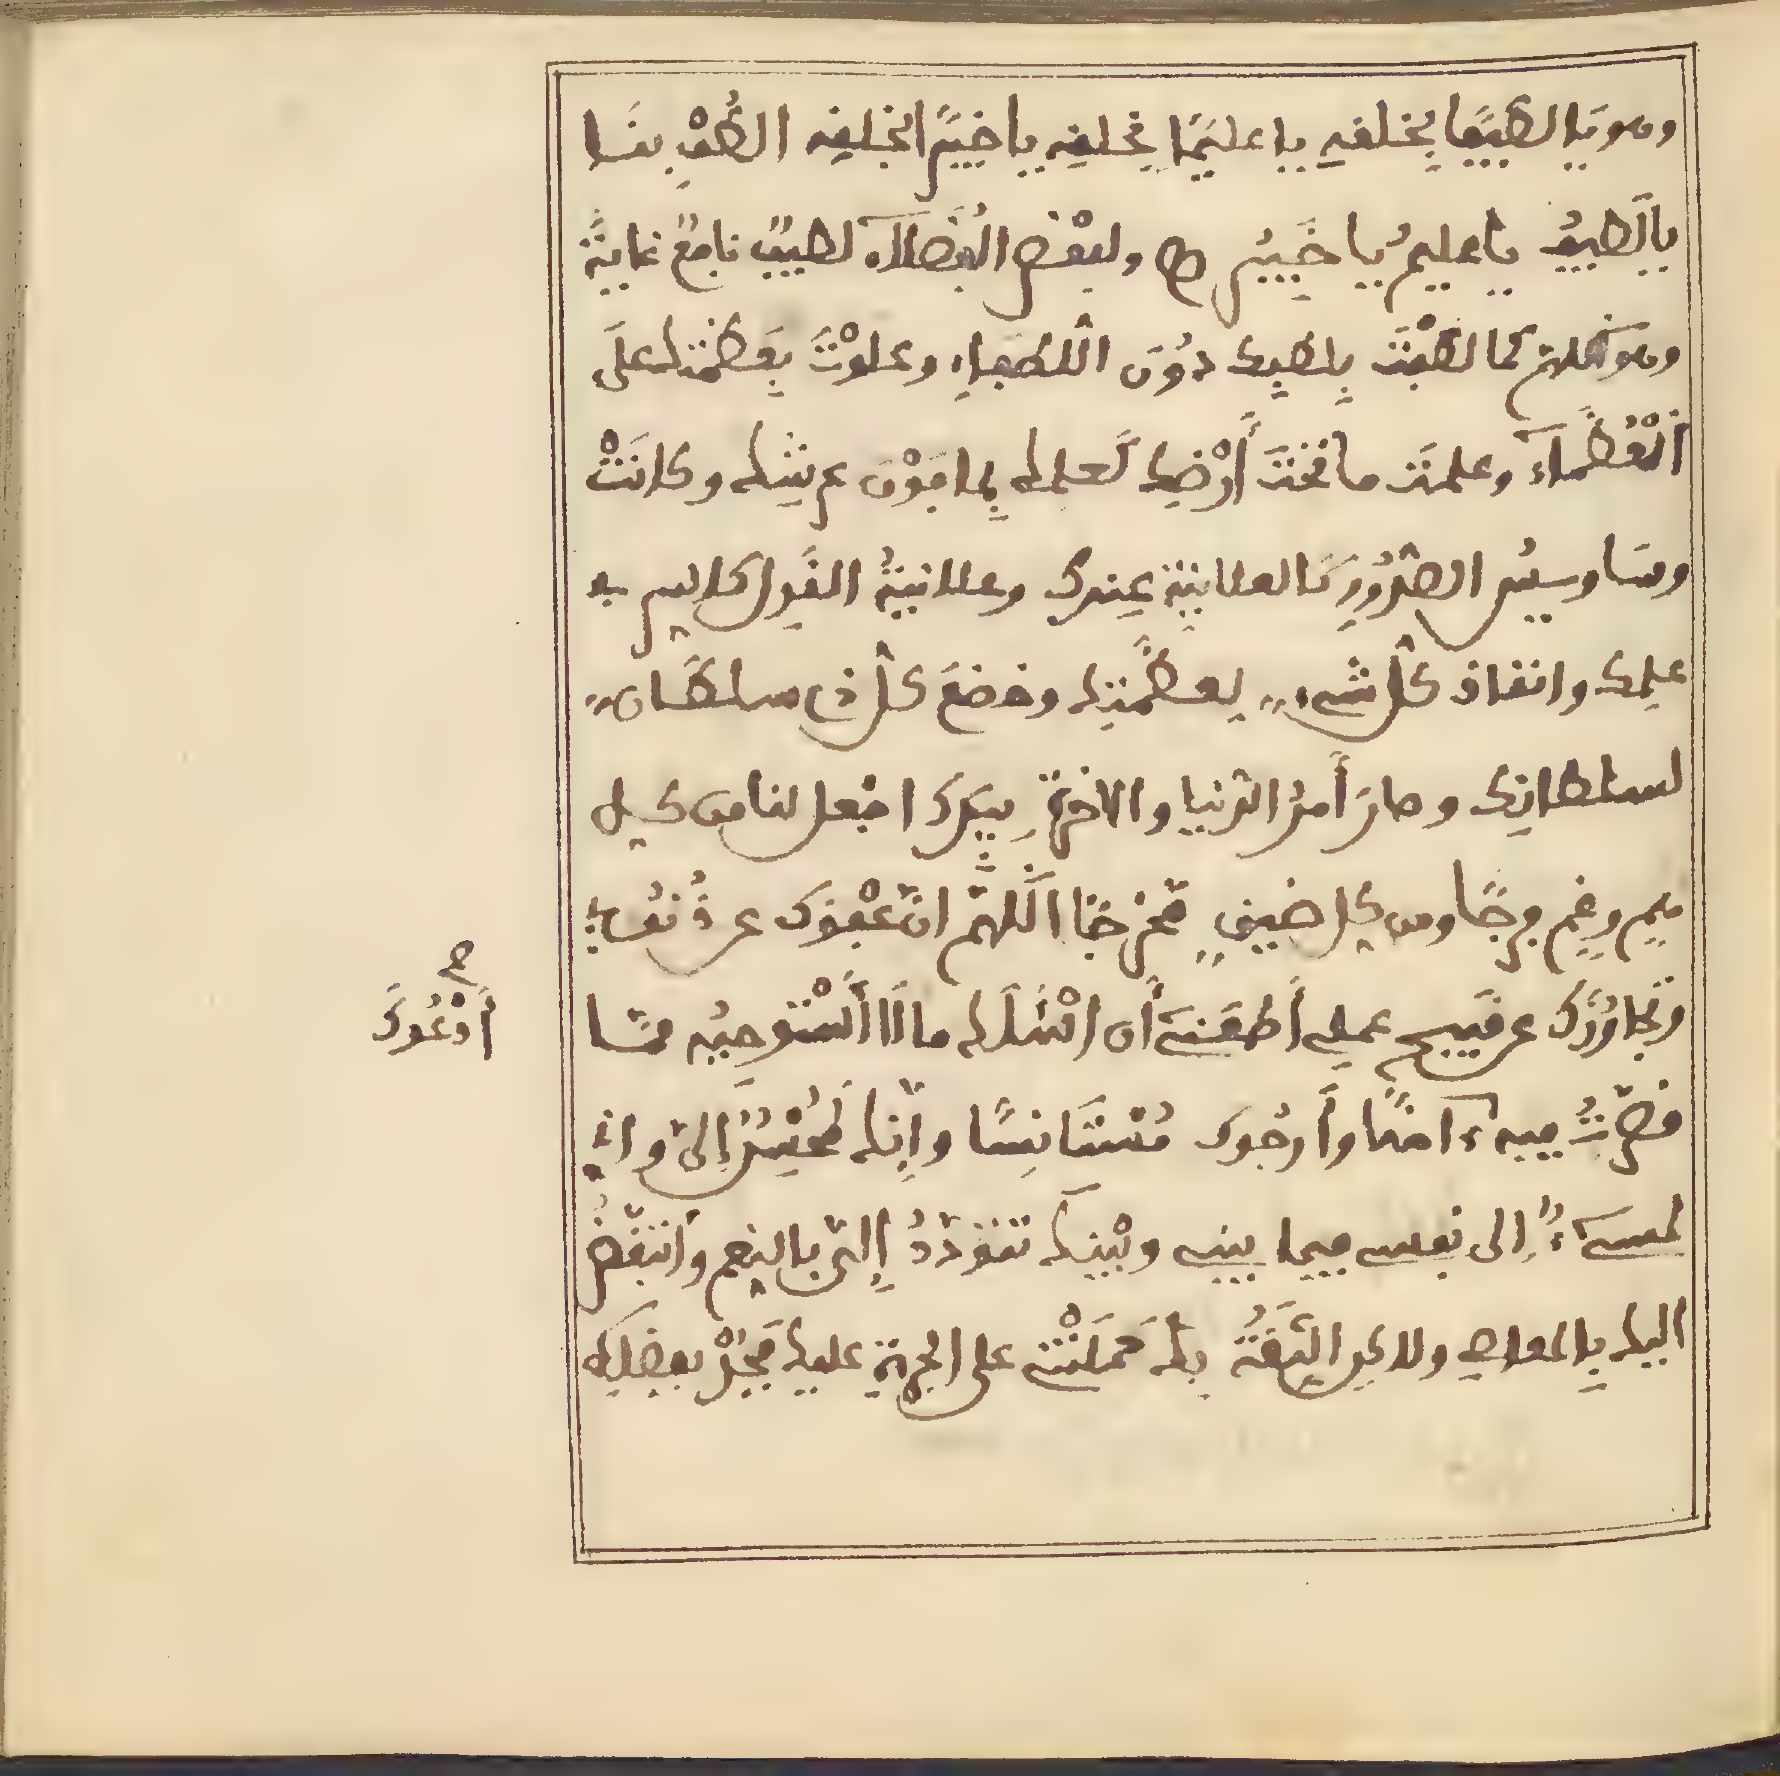 وهو يَا لطيفًا بِخلقه يا عليمًا بِخلقِه يا خبيرًا بخلقِه الطُفْ بنَا
يا لَطيفُ يا عليمُ يا خَبِيرُ ولبعْض الفُضَلَآء لطيفٌ نافعٌ غايةً
وهو اللهمّ كما لطفْتَ بِلطفِك دُونَ اللّطفاء وعلوْتَ بِعَظمتك علَى
الْعُظَمآء وعلمتَ ما تحْتَ أرْضِك كَعلمك بِما فَوْقَ عرشِك وكانتْ
وسَاوسُ الصّدُورِ كالعلانية عِندك وعلانيةُ القَول كالسر في
علمِك وانقاد كلّ شىء لِعظَمتِك وخضعَ كلّ ذى سلطان
لسلطانِك وصارَ أَمرُ الدّنيا والاخرة بِيَدك اجْعل لنا من كل
هم وغم فرجًا ومن كل ضيق مّخْرجًا اللَّهمّ انّ عَفْوَك عن ذُنُوبى
وتجاوُزَك عن قَبيح عملى أَطمعَنى أَن اسْئَلَك ما لَا أَسْتوجِبُه ممّا
قصّرتُ فيه ءامنًا وأَرجُوك مُسْتَانِسًا وإنّك لَمُحْسِنٌ إِلىّ وانى
لمسىءٌ إِلى نفسى فيما بينى وبيْنك تتودّدُ إِلىّ بالنِعم وأتبغّضُ
اليك بِالمعاصِى ولاكن الثِّقَةُ بك حَمَلَتْنى على الجرءة عليك فَجُدْ بفضلِك
أَدْعُوكَ